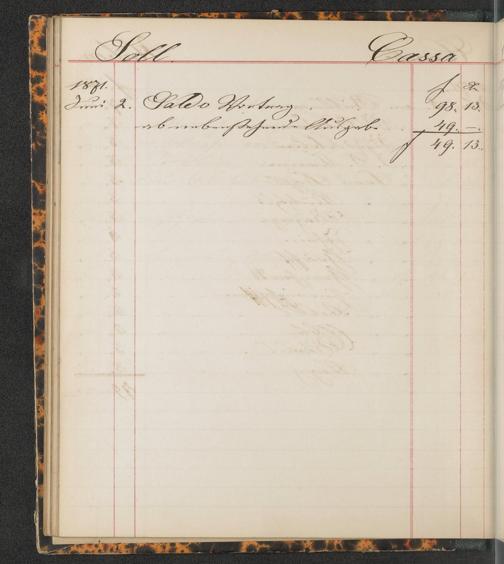 Soll. Cassa
1871. f x
Juni 2. Saldo Vortrag . 98. 13.
ab nebenstehende Ausgabe . 49. —.
f 49. 13.